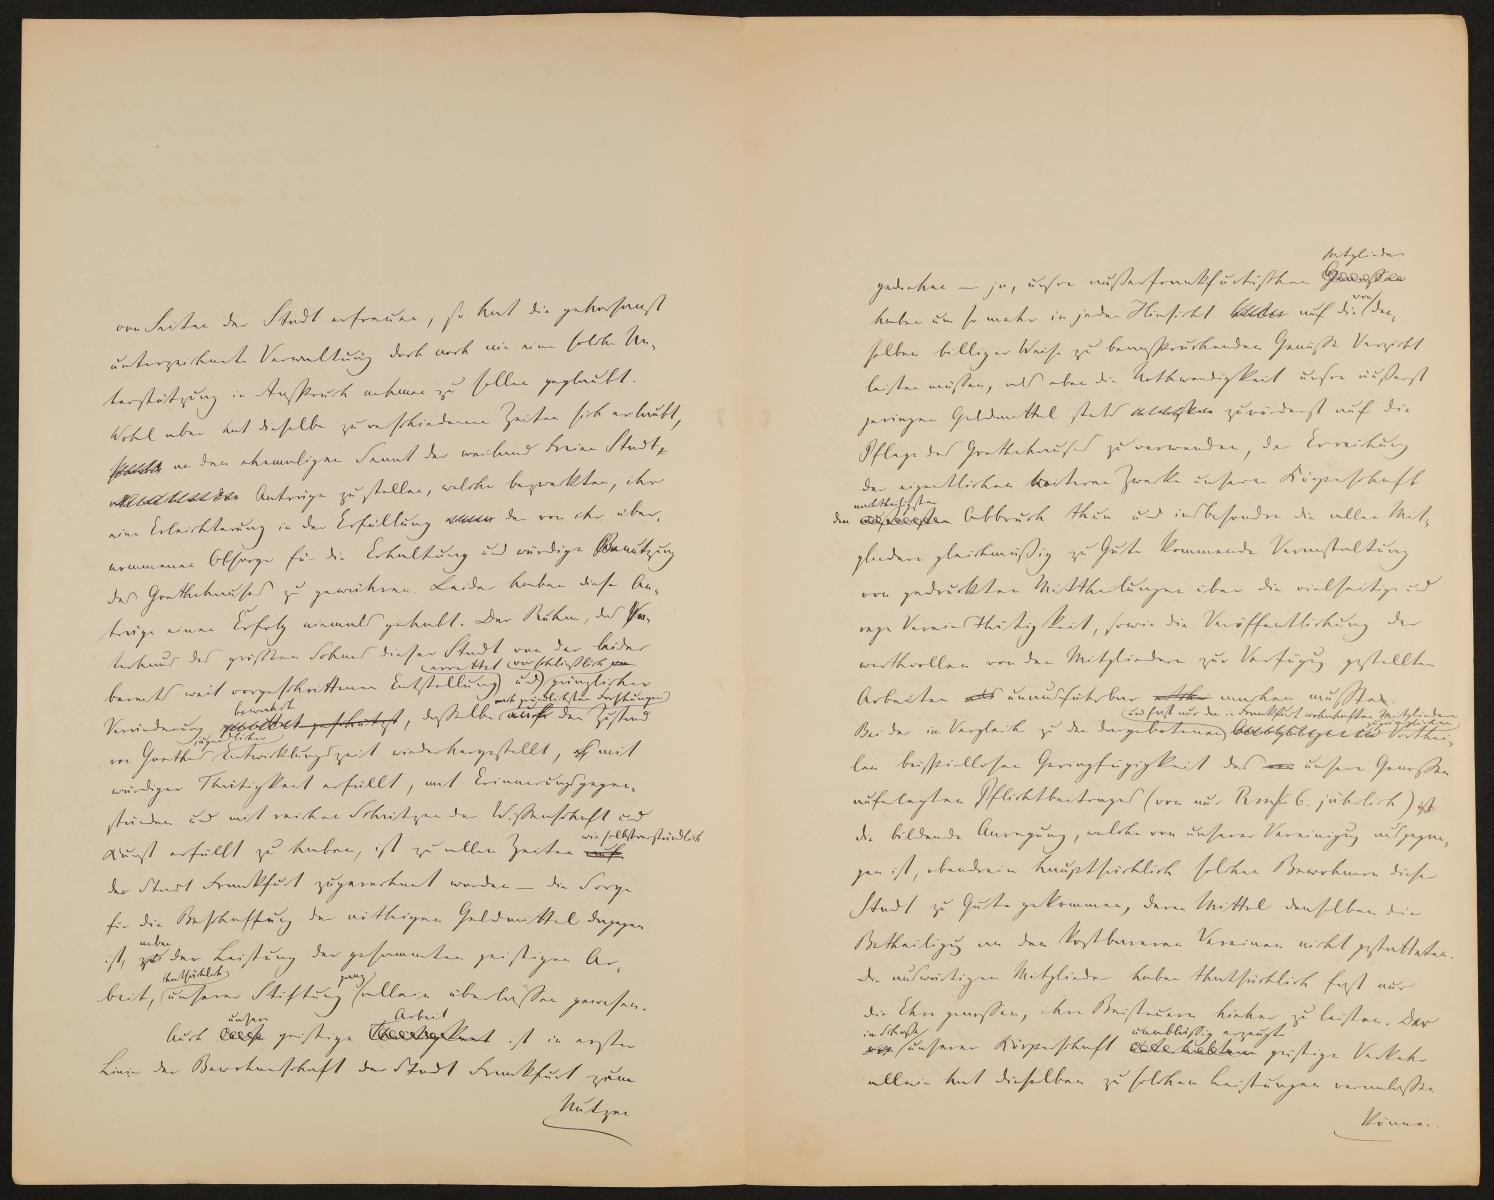 von Seiten der Stadt erfreuen, so hat die gehorsamst
unterzeichnete Verwaltung doch noch nie eine solche Un-
terstützung in Anspruch nehmen zu sollen geglaubt.
Wohl aber hat dieselbe zu verschiedenen Zeiten sich erlaubt,
an den ehemaligen Senat der weiland Freien Stadt
Anträge zu stellen, welche bezweckten, ihr
eine Erleichterung in der Erfüllung der von ihr über-
nommenen Obsorge für die Erhaltung und würdige Benutzung
des Goethehauses zu gewähren. Leider haben diese An-
träge einen Erfolg niemals gehabt. Der Ruhm, das Va-
terhaus des größten Sohnes dieser Stadt von der leider
errettet vor schließlich
bereits weit vorgeschrittenen Entstellung und gänzlicher
bewahrt nach gründlichsten Forschungen
Veränderung gerettet geschützt, dasselbe auf den Zustand
jugendlicher
von Goethes Entwicklungszeit wiederhergestellt, mit
würdiger Thätigkeit erfüllt, mit Erinnerungsgegen-
ständen und mit reichen Schätzen der Wissenschaft und
wie selbstverständlich
Kunst erfüllt zu haben, ist zu allen Zeiten auf
der Stadt Frankfurt zugerechnet worden — die Sorge
für die Beschaffung der nöthigen Geldmittel dagegen
neben
ist, zu der Leistung der gesammten geistigen Ar-
thatsächlich ganz
beit, unserer Stiftung allein überlassen gewesen.
unsere Arbeit
Auch diese geistige Thätigkeit ist in erster
Linie der Bewohnerschaft der Stadt Frankfurt zum
Nutzen
Mitglieder
gediehen — ja, unsre außerfrankfurtischen Genossen
von
haben um so mehr in jeder Hinsicht auf die den-
selben billiger Weise zu beanspruchenden Genüsse Verzicht
leisten müssen, als eben die Nothwendigkeit unsre äußerst
geringen Geldmittel stets zuvörderst auf die
Pflege des Goethehauses zu verwenden, der Erreichung
der eigentlichen weiteren Zwecke unserer Körperschaft
nachtheiligsten
den äußersten Abbruch thun und insbesondre die allen Mit-
gliedern gleichmäßig zu Gute kommende Veranstaltung
von gedruckten Mittheilungen über die vielseitige und
rege Vereinsthätigkeit, sowie die Veröffentlichung der
werthvollen von den Mitgliedern zur Verfügung gestellten
Arbeiten als unausführbar machen mußten.
und fast nur den in Frankfurt wohnhaften Mitgliedern
zugänglichen
Bei der im Vergleich zu den dargebotenen Vorthei-
len beispiellosen Geringfügigkeit des unseren Genossen
auferlegten Pflichtbeitrages (von nur Rmk 6. jährlich) ist
die bildende Anregung, welche von unserer Vereinigung ausgegan-
gen ist, obendrein hauptsächlich solchen Bewohnern dieser
Stadt zu Gute gekommen, deren Mittel denselben die
Betheiligung an den kostbareren Vereinen nicht gestatteten.
Die auswärtigen Mitglieder haben thatsächlich fast nur
die Ehre genossen, ihre Beisteuern hieher zu leisten. Der
im Schoße unablässig erzeugte
unserer Körperschaft geistige Verkehr
allein hat dieselben zu solchen Leistungen veranlassen
können.